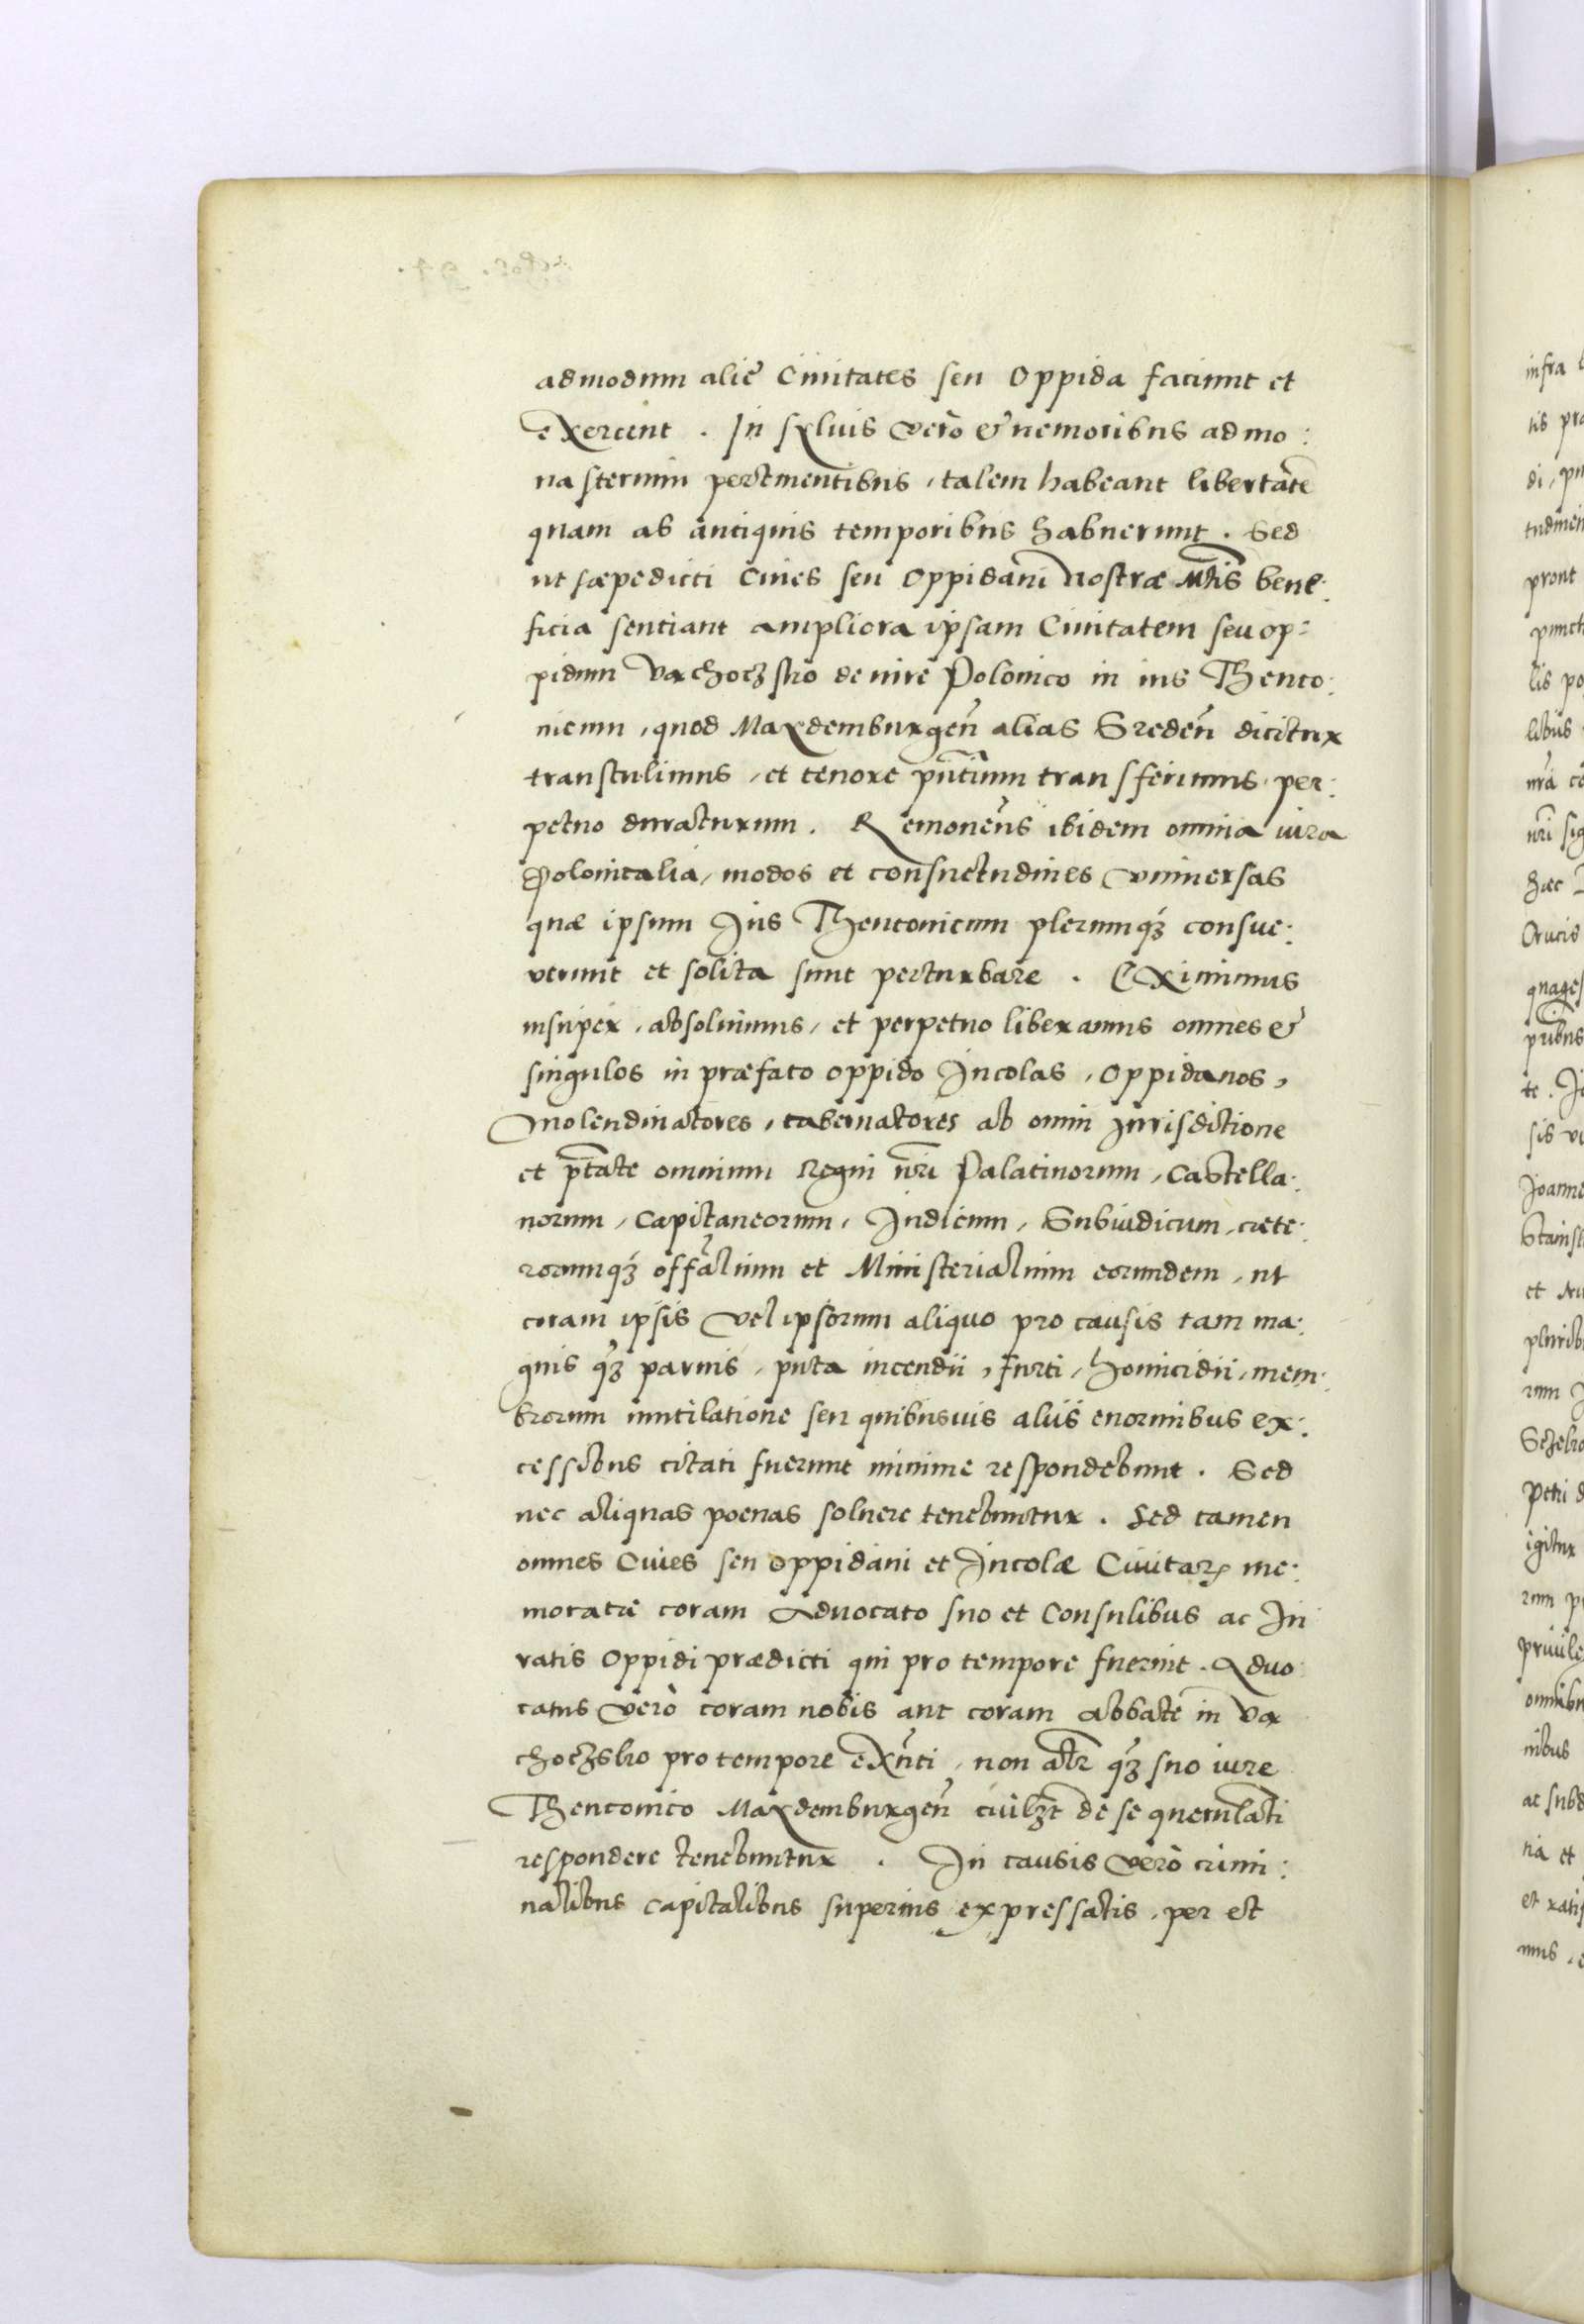 admodum aliè Ciuitates seu Oppida faciunt et
exercent . In sylvis verò & nemoribus ad mo:
nasterium pertinentibus, talem habeant libertatē
quam ab antiquis temporibus habuerunt . Sed
ut sæpedicti Ciues seu Oppidani Nostræ Mtis bene:
ficia sentiant ampliora ipsam Ciuitatem seu op:
pidum Vachoczsko de iure Polonico in ius Theuto:
nicum, quod Maydemburgeñ alias Sredeñ dicitur
transtulimus, et tenore pñtium transferimus per:
petuo duraturum . Remoueñs ibidem omnia iura
Polonicalia, modos et consuetudines vniuersas
quæ ipsum Ius Theutonicum plerumq₃ consue:
verunt et solita sunt perturbare . Eximimus
insuper, absoluimus, et perpetuo liberamus omnes &
singulos in præfato oppido Incolas, Oppidanos,
Molendinatores, tabernatores ab omni Jurisdictione
et ptãte omnium Regni nr̃i Palatinorum, Castella:
norum, Capitaneorum, Judicum, Subiudicum, cæte:
rorumq₃ offãlium et Ministerialium eorundem, ut
coram ipsis vel ipsorum aliquo pro causis tam ma:
gnis q₃ paruis, puta incendii, furti, homicidii, mem:
brorum mutilatione seu quibusuis aliis enormibus ex:
cessibus citati fuerunt minime respondebunt . Sed
nec aliquas poenas soluere tenebuntur . Sed tamen
omnes Ciues seu oppidani et Incolæ Ciuitatꝝ me:
moratæ coram Aduocato suo et Consulibus ac Ju
ratis Oppidi prædicti qui pro tempore fuerint . Aduo
catus verò coram nobis aut coram abbate in Va
choczsko pro tempore exñti, non alr̃ q₃ suo iure
Theutonico Maydemburgeñ ciuil₃t de se querulãti
respondere tenebuntur . In causis verò crimi:
nalibus capitalibus superius expressatis, per et